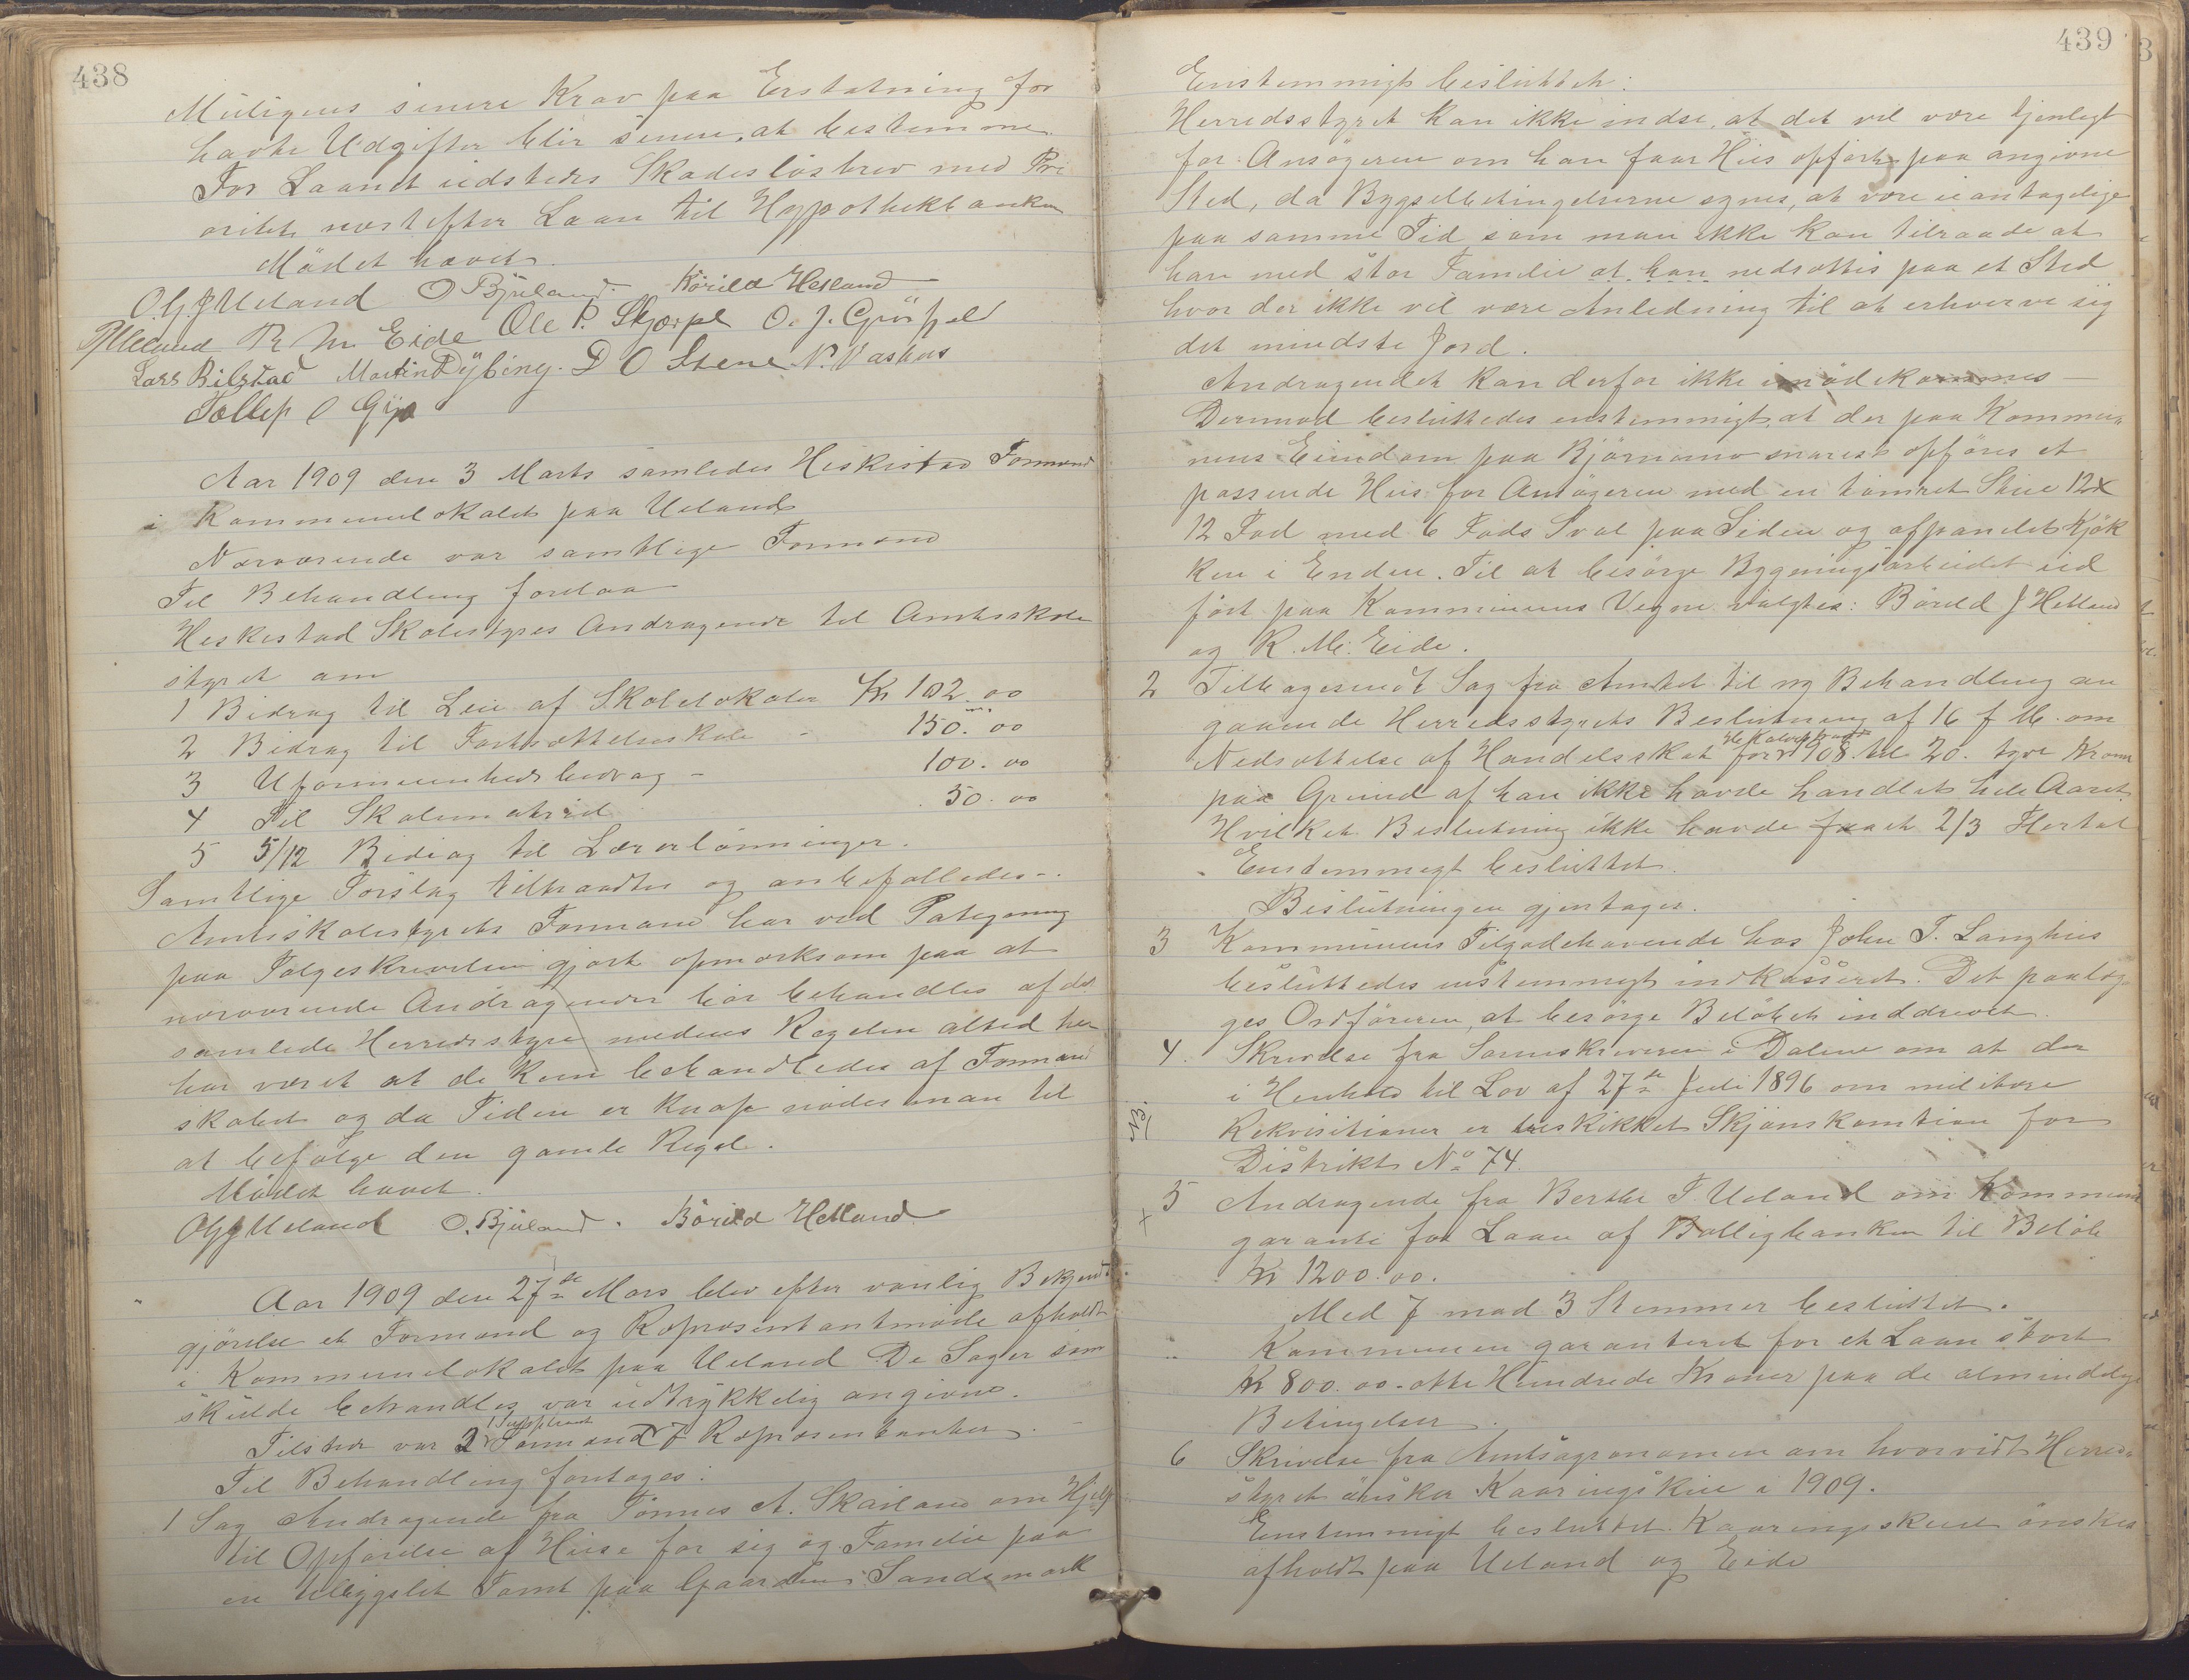 438
Muligens senere Krav paa Erstatning for
havte Udgifter blir senere at bestemme.
For Laanet udstedes Skadesløsbrev med Pri
oritet næst efter Laan til Hypothekbanken
Mødet hævet.
O.G.J Ueland O Bjuland. Börild Hetland
R. M. Eide Ole P. Skjerpe O. J. Gröfjeld
Lars Bilstad Martin Dybing. D O Stene N. Vashus
Tollef O Gya
Aar 1909 den 3 Marts samledes Heskestad Formænd
i Kommunelokalet paa Ueland
Nærværende var samtlige Formænd
Til Behandling forelaa
Heskestad Skolestyres Andragende til Amtsskole
styret om
1 Bidrag til Leie af Skolelokaler Kr 102.00
2 Bidrag til Fortsættelsesskole - 150.00
3 Uformuenhedsbidrag - 100.00
4 Til Skolemateriel 50.00
5 5/12 Bidrag til Lærerlønninger.
Samtlige Forslag tiltraadtes og anbefalledes -.
Amtsskolestyrets Formand har ved Paategning
paa Følgeskrivelsen gjort opmærksom paa at
nærværende Andragender bør behandles af det
samlede Herredsstyre medens Regelen altid her
har været at de kun behandledes af Formand
skabet og da Tiden er knap nødes man til
at befølge den gamle Regel.
Mødet hævet.
OGJ Ueland O. Bjuland. Börild Hetland
Aar 1909 den 27de Mars blev efter vanlig Bekjendt
gjørelse et Formænd og Repræsentantmøde afholdt
i Kommunelokalet paa Ueland De Sager som
skulde behandles var udtrykkelig angivne.
1 Suppleant
Tilstede var 2 Formænd 7 Repræsentanter.
Til Behandling foretages:
1 Sag Andragende fra Tønnes A. Skailand om Hjelp
til Opførelse af Huse for sig og Familie paa
en Tomt paa Gaarden Sandsmark
439
Enstemmigt besluttet:
Herredsstyret kan ikke indse, at det vil være tjenligt
for Ansøgeren om han faar Hus opført paa angivne
Sted, da Bygselbetingelserne synes, at være uantagelige
paa samme Tid som man ikke kan tilraade at
han med stor Familie at han nedsættes paa et Sted
hvor der ikke vil være Anledning til at erhverve sig
det mindste Jord.
Andragendet kan derfor ikke imødekommes -
Derimod besluttedes enstemmigt, at der paa Kommu
nens Eiendom paa Bjørnamo snarest opføres et
passende Hus for Ansøgeren med en tømret Stue 12x
12 Fod med 6 Fods Sval paa Siden og afpanelet Kjøk
ken i Enden. Til at besørge Bygningsarbeidet ud
ført paa Kommunens Vegne valgtes: Börild J Hetland
og R. M. Eide.
2 Tilbagesendt Sag fra Amtet til ny Behandling an
gaaende Herredsstyrets Beslutning af 16 f M. om
Nedsættelse af Handelsskat for 1908 til 20. tyve Kroner
paa Grund af han ikke havde handlet hele Aaret.
Hvilken Beslutning ikke havde faaet 2/3 Flertal
Enstemmigt besluttet.
Beslutningen gjentages.
3 Kommunens Tilgodehavende hos John T. Langhus
besluttedes enstemmigt indkasseret. Det paalæg
ges Ordføreren, at besørge Beløbet inddrevet.
4. Skrivelse fra Sorenskriveren i Dalene om at der
i Henhold til Lov af 27de Juli 1896 om militære
NB. Rekvisitioner er beskikket Skjønskomtion for
Distrikt No 74.
5 Andragende fra Berthe T. Ueland om Kommune
x garanti for Laan af Boligbanken til Beløb
Kr 1200.00.
Med 7 mod 3 Stemmer besluttet.
Kommunen garanteret for et Laan stort
Kr 800.00 - otte Hundrede Kroner paa de almindelige
Betingelser.
6 Skrivelse fra Amtsagronomen om hvorvidt Herreds
styret ønsker Kaaringskue i 1909.
Enstemmigt besluttet. Kaaringsskuet ønskes
afholdt paa Ueland og Eide